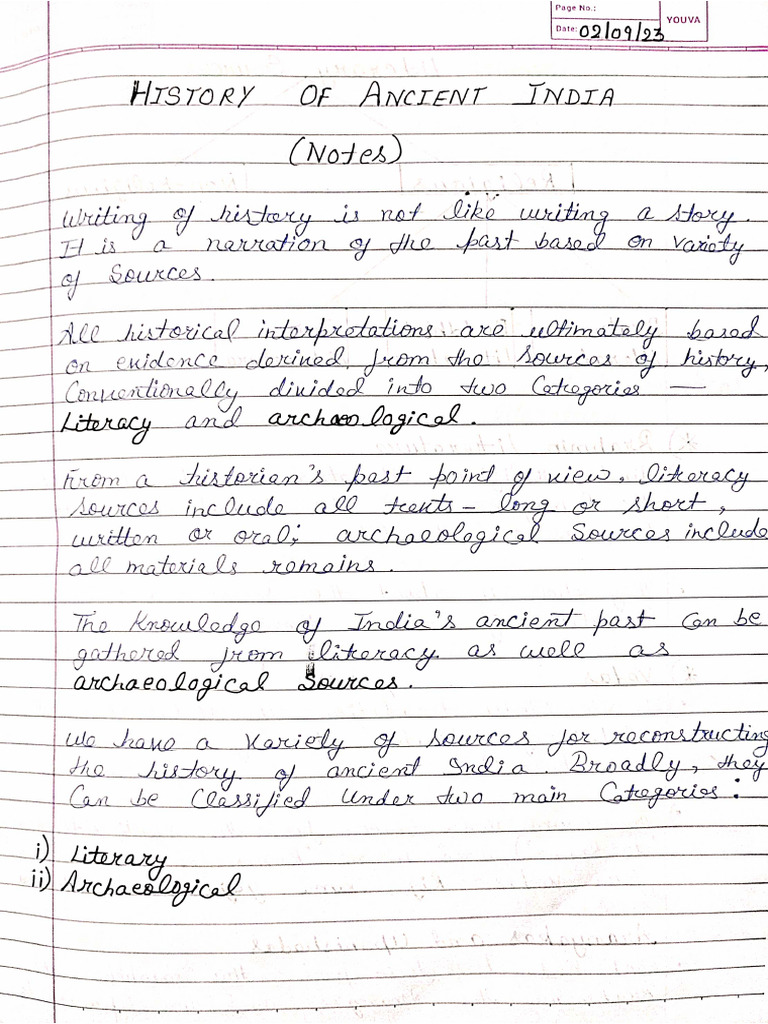 Page No.:
YOUVA
Date: 02/09/23
HISTORY OF ANCIENT INDIA
(Notes)
Writing of history is not like writing a story.
It is a narration of the past based on variety
of Sources.
All historical interpretations are ultimately based
on evidence derived from the sources of history,
Conventionally divided into two Categories —
Literacy and archaeological.
From a historian's past point of view, literacy
sources include all texts - long or short,
written or oral; archaeological Sources include
all materials remains.
The Knowledge of India's ancient past Can be
gathered from literacy as well as
archaeological Sources.
We have a variety of sources for reconstructing
the history of ancient India. Broadly, they
Can be Classified Under two main Categories:
i) Literary
ii) Archaeological